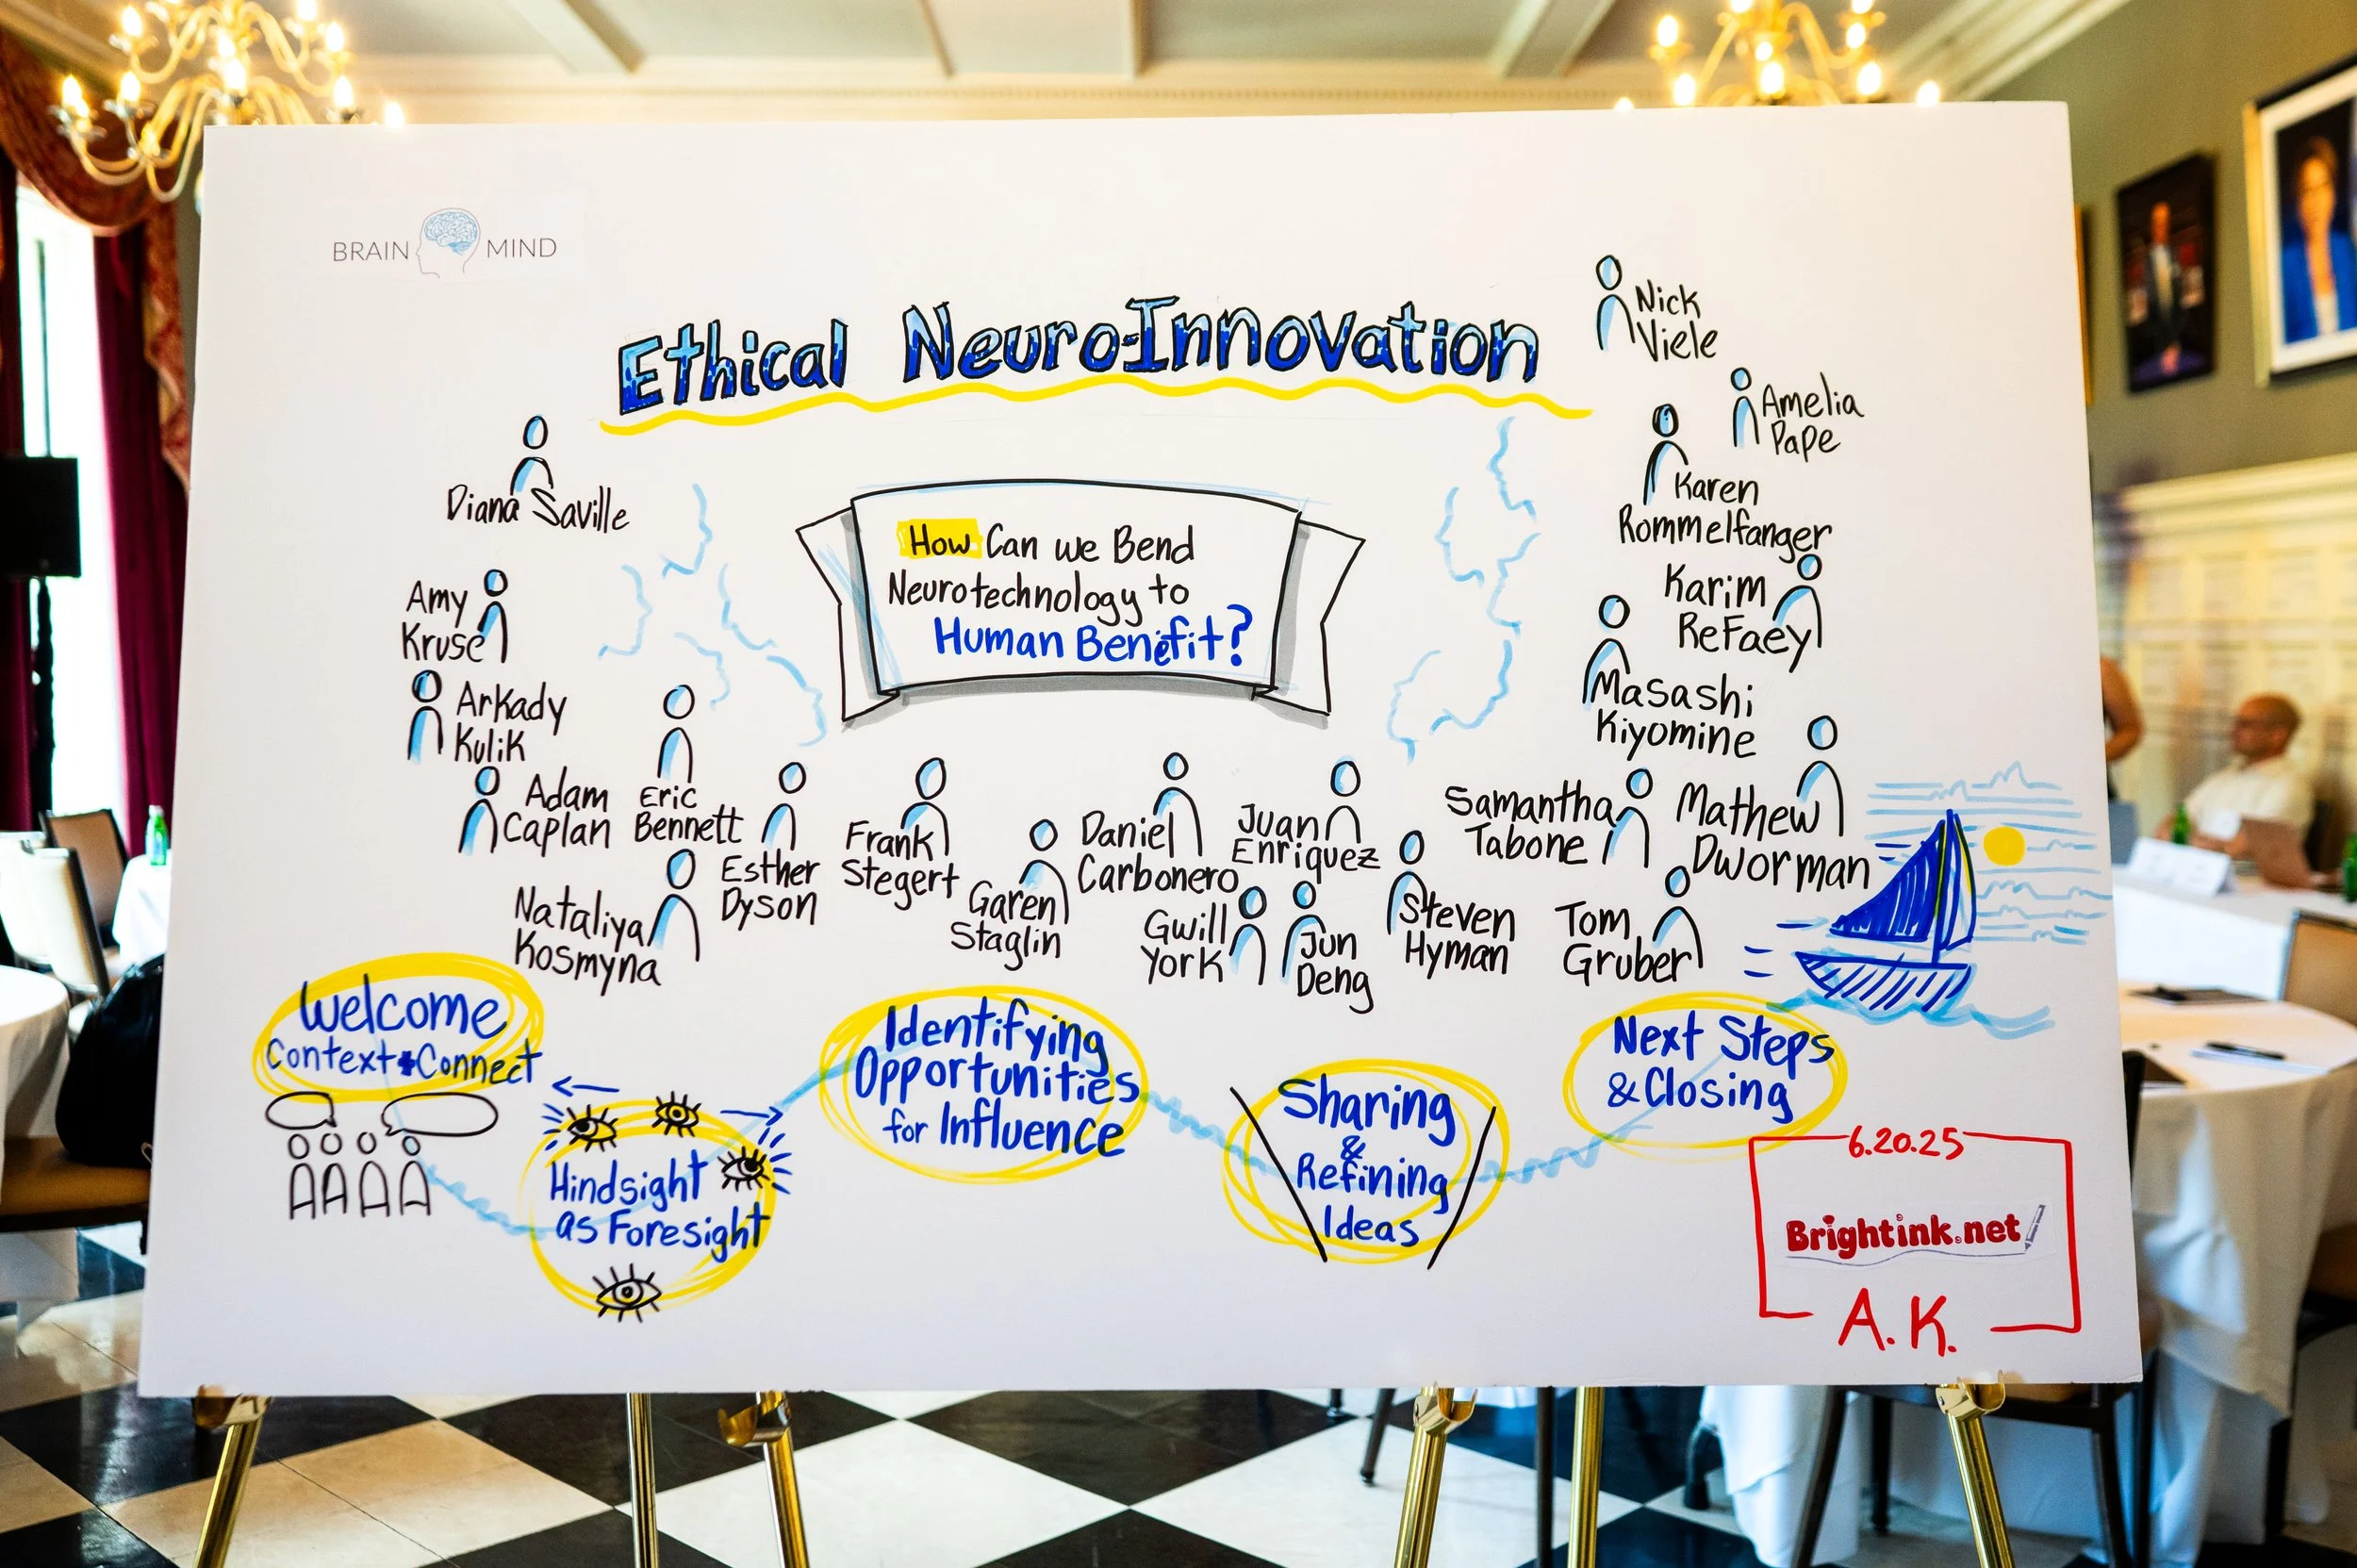 BRAIN MIND
Ethical Neuro-Innovation
Nick
Viele
Amelia
Pape
Karen
Rommelfanger
Karim
ReFaey
Masashi
Kiyomine
Diana Saville
How Can we Bend
Neurotechnology to
Human Benefit?
Amy
Kruse
Arkady
Kulik
Adam
Caplan
Eric
Bennett
Nataliya
Kosmyna
Esther
Dyson
Frank
Stegert
Garen
Staglin
Daniel
Carbonero
Juan
Enriquez
Gwill
York
Jun
Deng
Steven
Hyman
Samantha
Tabone
Mathew
Dworman
Tom
Gruber
Welcome
Context+Connect
Hindsight
as Foresight
Identifying
Opportunities
for Influence
Sharing
&
Refining
Ideas
Next Steps
& Closing
6.20.25
Brightink.net
A.K.